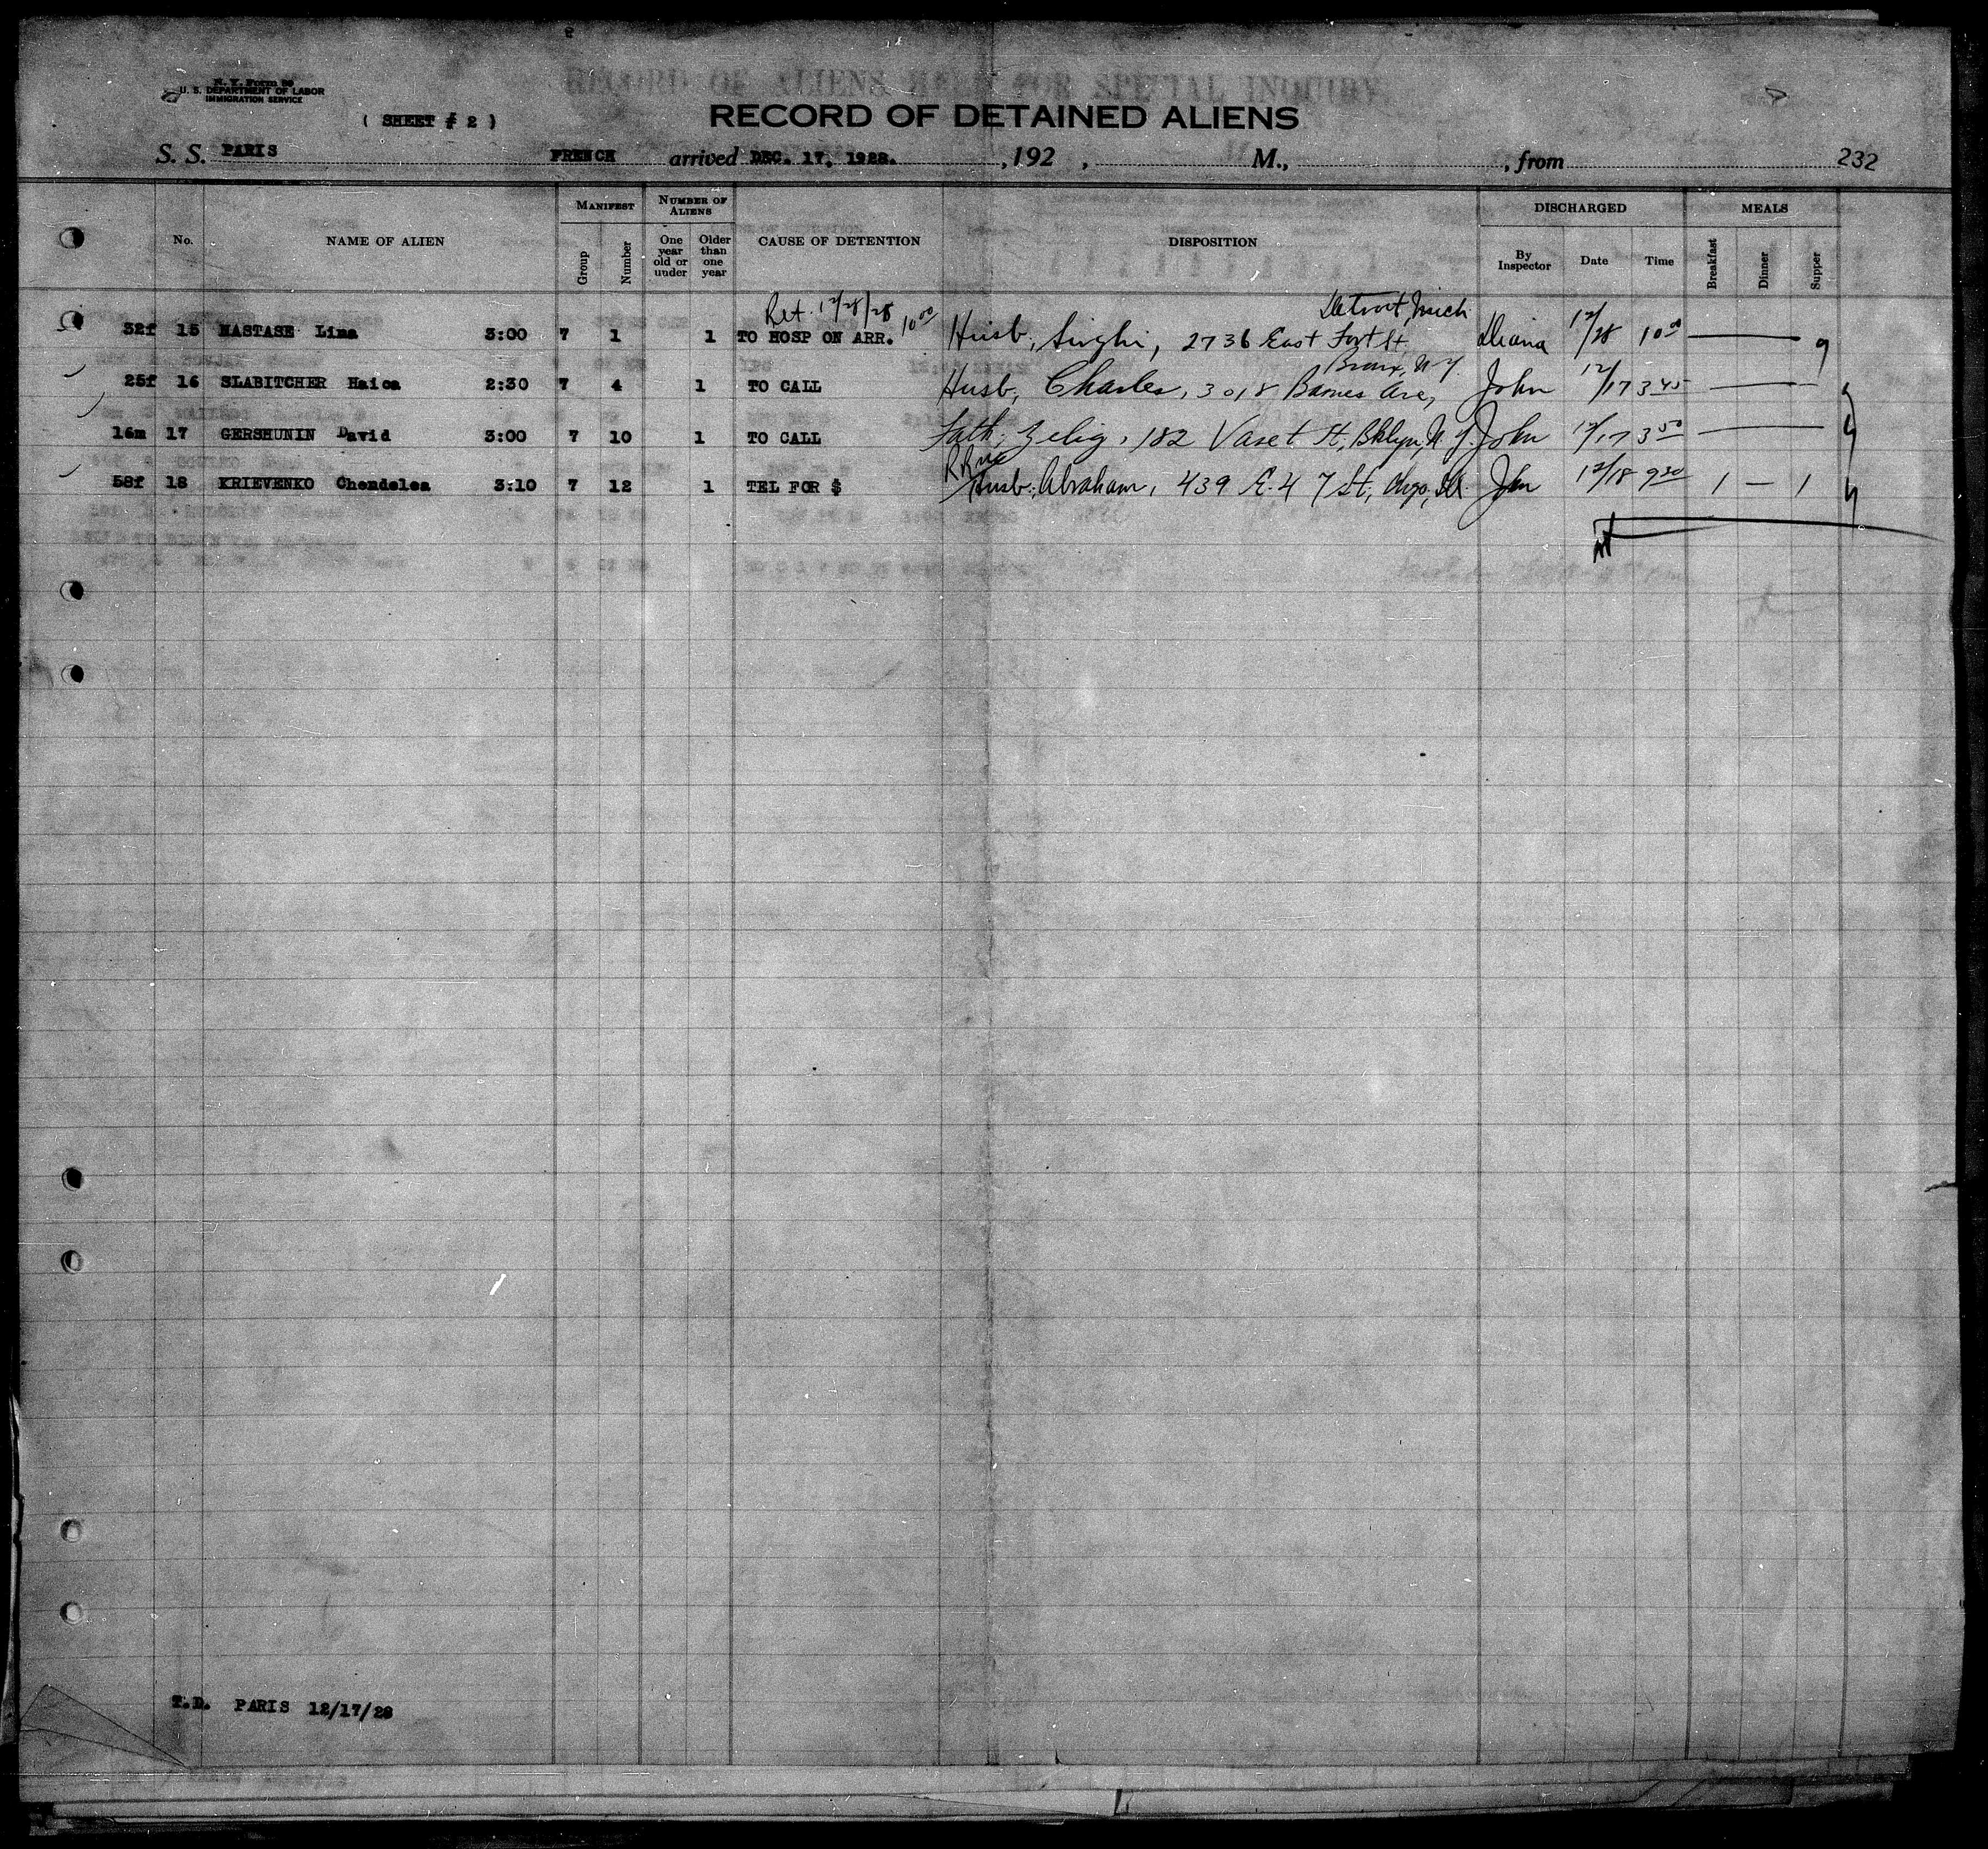 N. Y. Form 99
U. S. DEPARTMENT OF LABOR
IMMIGRATION SERVICE
RECORD OF ALIENS HELD FOR SPECIAL INQUIRY
( SHEET # 2 )
RECORD OF DETAINED ALIENS
S. S. PARIS FRENCH arrived DEC. 17, 1928. , 192 , M., , from 232
MANIFEST NUMBER OF ALIENS DISCHARGED MEALS
No. NAME OF ALIEN Group Number One year old or under Older than one year CAUSE OF DETENTION DISPOSITION By Inspector Date Time Breakfast Dinner Supper
Ret. 12/28/28 10 00 Detroit, Mich
32f 15 NASTASE Lina 3:00 7 1 1 TO HOSP ON ARR. Husb, 2736 East Fort St, 12/28 10 00
Bronx, N.Y.
25f 16 SLABITCHER Haica 2:30 7 4 1 TO CALL Husb, Charles, 3018 Barnes Ave, John 12/17 3 45
16m 17 GERSHUNIN David 3:00 7 10 1 TO CALL Fath, Zelig, 182 Varet St, Bklyn, N.Y. John 12/17 3 50
58f 18 KRIEVENKO Chendelea 3:10 7 12 1 TEL FOR $ Husb, Abraham, 439 E. 47 St, Chgo, Ill. John 12/18 9 30 1 — 1
T.D. PARIS 12/17/28